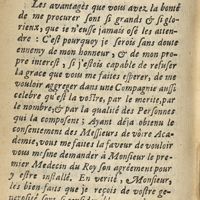 Les avantages que vous avez la bonté
de me procurer sont si grands & si glo-
rieux, que je n'eusse jamais osé les atten-
dre : C'est pourquoy je serois sans doute
ennemy de mon bonneur, & de mon pro-
pre interest, si j'estois capable de refuser
la grace que vous me faites esperer, de me
vouloir aggreger dans une Compagnie aussi
celebre qu'est la vôtre, par le merite, par
le nombre, & par la qualité des Personnes
qui la composent; Ayant déja obtenu le
consentement des Messieurs de vôtre Aca-
demie, vous me faites la faveur de vouloir
vous mesme demander à Monsieur le pre-
mier Medecin du Roy son agrément pour
y estre installé. En verité, Monsieur,
les bien-faits que je reçois de vostre ge-